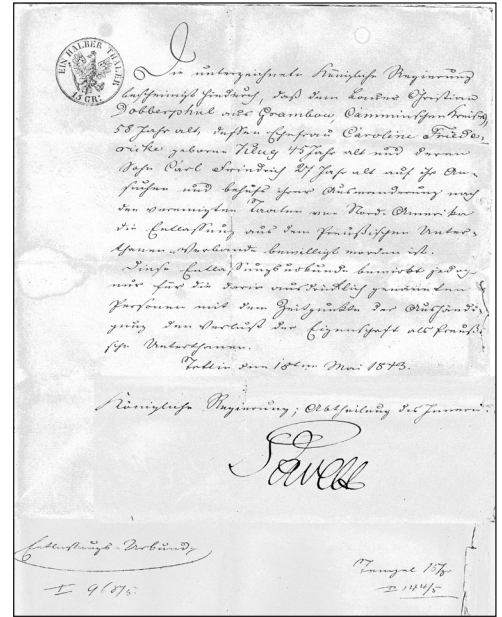 EIN HALBER THALER
15 GR:
Die unterzeichnete Königliche Regierung
bescheinigt hiedurch, daß dem Christian
Dobberphul aus Grambow, Camminschen Kreises,
58 Jahr alt, dessen Ehefrau Caroline Friede-
ricke geborne Klug 45 Jahr alt und deren
Sohn Carl Friedrich 27 Jahr alt auf ihr An-
suchen und behufs ihrer Auswanderung nach
den vereinigten Staaten von Nord-Amerika
die Entlassung aus dem Preußischen Unter-
thanen-Verbande bewilligt worden ist.
Diese Entlassungsurkunde bewirkt jedoch
nur für die darin ausdrücklich genannten
Personen mit dem Zeitpunkte der Aushändi-
gung den Verlust der Eigenschaft als Preußi-
sche Unterthanen.
Stettin den 18ten Mai 1843.
Königliche Regierung; Abtheilung des Innern.
Entlassungs-Urkunde
I
Stempel 15